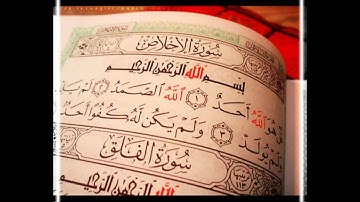 سُورَةُ الإِخْلَاصِ
بِسْمِ اللَّهِ الرَّحْمَٰنِ الرَّحِيمِ
هُوَ اللَّهُ أَحَدٌ ١ اللَّهُ الصَّمَدُ ٢ لَمْ يَلِدْ
وَلَمْ يُولَدْ ٣ وَلَمْ يَكُن لَّهُ كُفُوًا أَحَدٌ
سُورَةُ الْفَلَقِ
اللَّهِ الرَّحْمَٰنِ الرَّحِيمِ